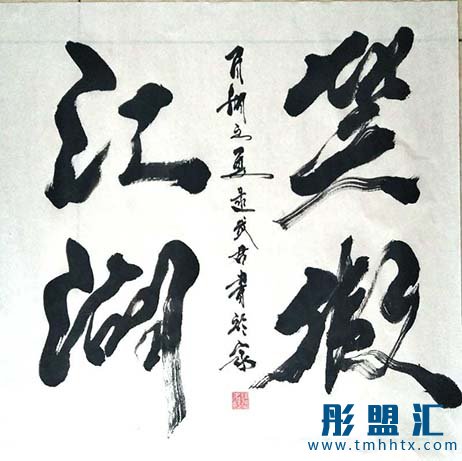 笑傲
江湖
之夏 武君書於
彤盟汇
www.tmhhtx.com